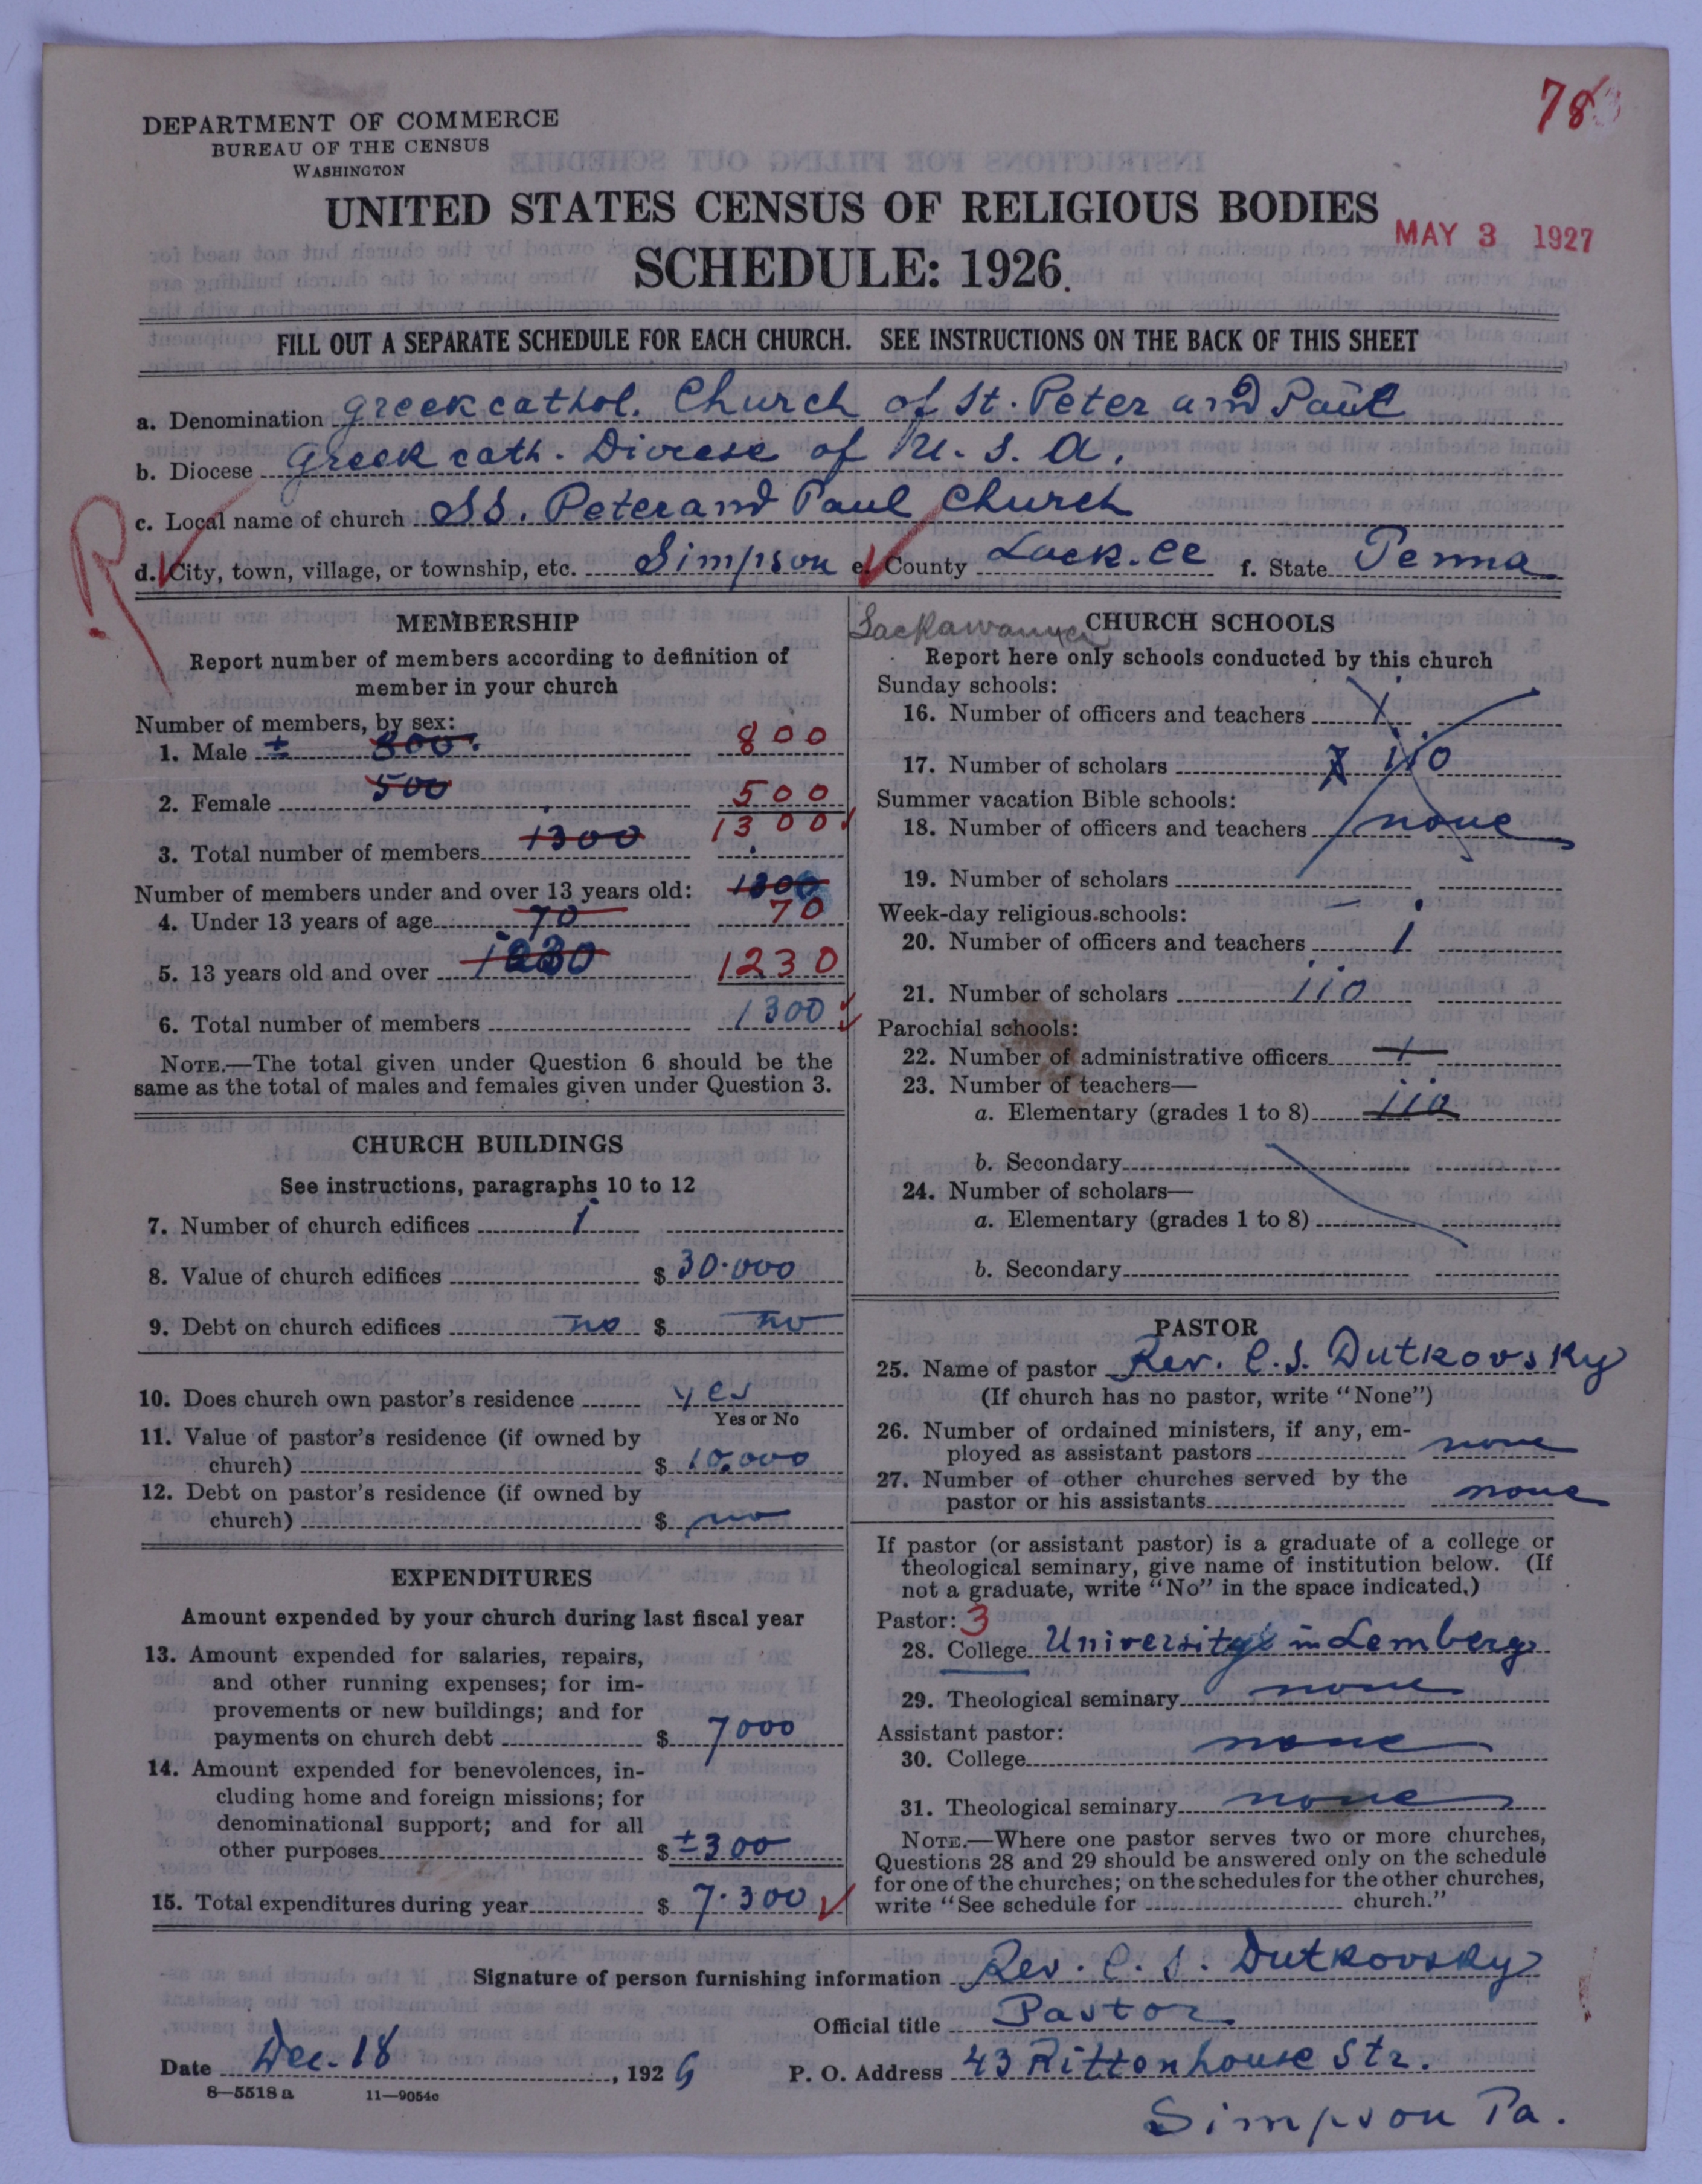 783
DEPARTMENT OF COMMERCE
BUREAU OF THE CENSUS
WASHINGTON
UNITED STATES CENSUS OF RELIGIOUS BODIES
MAY 3 1927
SCHEDULE: 1926
FILL OUT A SEPARATE SCHEDULE FOR EACH CHURCH. SEE INSTRUCTIONS ON THE BACK OF THIS SHEET
a. Denomination greek cathol. Church of St. Peter and Paul
b. Diocese Greek cath. Diocese of U. S. A.
c. Local name of church SS. Peter and Paul Church
d. City, town, village, or township, etc. Simpson e. County Lack. ce f. State Penna
R
MEMBERSHIP
Report number of members according to definition of
member in your church
Number of members, by sex:
1. Male ± 800. 800
2. Female 500 500
1300
3. Total number of members 1300
Number of members under and over 13 years old: 1300
4. Under 13 years of age 70 70
5. 13 years old and over 1230 1230
6. Total number of members 1300
NOTE.—The total given under Question 6 should be the
same as the total of males and females given under Question 3.
CHURCH BUILDINGS
See instructions, paragraphs 10 to 12
7. Number of church edifices 1
8. Value of church edifices $ 30.000
9. Debt on church edifices no $ no
10. Does church own pastor's residence yes
Yes or No
11. Value of pastor's residence (if owned by
church) $ 10.000
12. Debt on pastor's residence (if owned by
church) $ no
EXPENDITURES
Amount expended by your church during last fiscal year
13. Amount expended for salaries, repairs,
and other running expenses; for im-
provements or new buildings; and for
payments on church debt $ 7000
14. Amount expended for benevolences, in-
cluding home and foreign missions; for
denominational support; and for all
other purposes $ ±300
15. Total expenditures during year $ 7.300
Lackawanna
CHURCH SCHOOLS
Report here only schools conducted by this church
Sunday schools:
16. Number of officers and teachers 1
17. Number of scholars 110
Summer vacation Bible schools:
18. Number of officers and teachers none
19. Number of scholars
Week-day religious schools:
20. Number of officers and teachers 1
21. Number of scholars 110
Parochial schools:
22. Number of administrative officers 1
23. Number of teachers—
a. Elementary (grades 1 to 8) 110
b. Secondary
24. Number of scholars—
a. Elementary (grades 1 to 8)
b. Secondary
PASTOR
25. Name of pastor Rev. C. S. Dutkovsky
(If church has no pastor, write "None")
26. Number of ordained ministers, if any, em-
ployed as assistant pastors none
27. Number of other churches served by the
pastor or his assistants none
If pastor (or assistant pastor) is a graduate of a college or
theological seminary, give name of institution below. (If
not a graduate, write "No" in the space indicated.)
Pastor: 3
28. College University in Lemberg
29. Theological seminary none
Assistant pastor:
30. College none
31. Theological seminary none
NOTE.—Where one pastor serves two or more churches,
Questions 28 and 29 should be answered only on the schedule
for one of the churches; on the schedules for the other churches,
write "See schedule for church."
Signature of person furnishing information Rev. C. S. Dutkovsky
Official title Pastor
Date Dec. 18, 1926 P. O. Address 43 Rittenhouse Str.
8—5518 a 11—9054c
Simpson Pa.